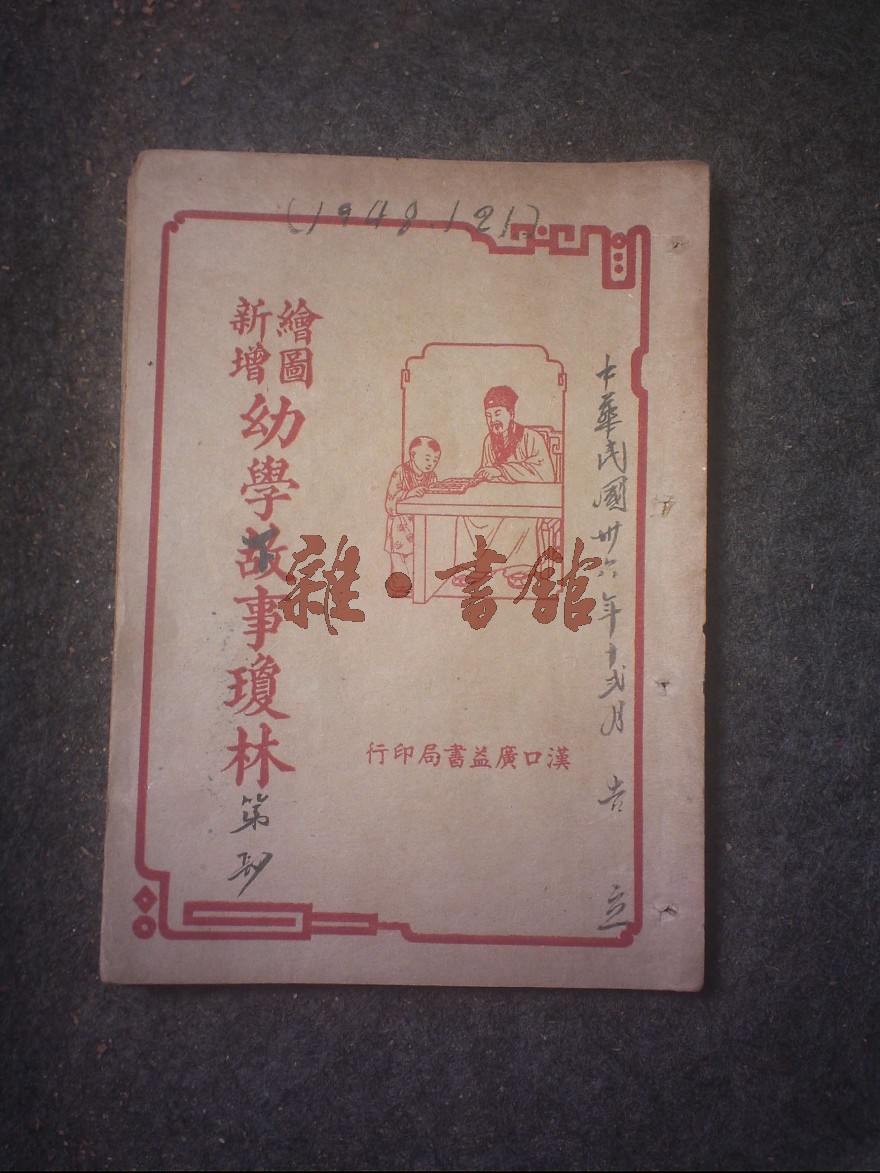 (1948.12.1)
中華民國卅六年十弍月 吉 立
繪圖
新增
幼學故事瓊林
第
漢口廣益書局印行
雜·書館